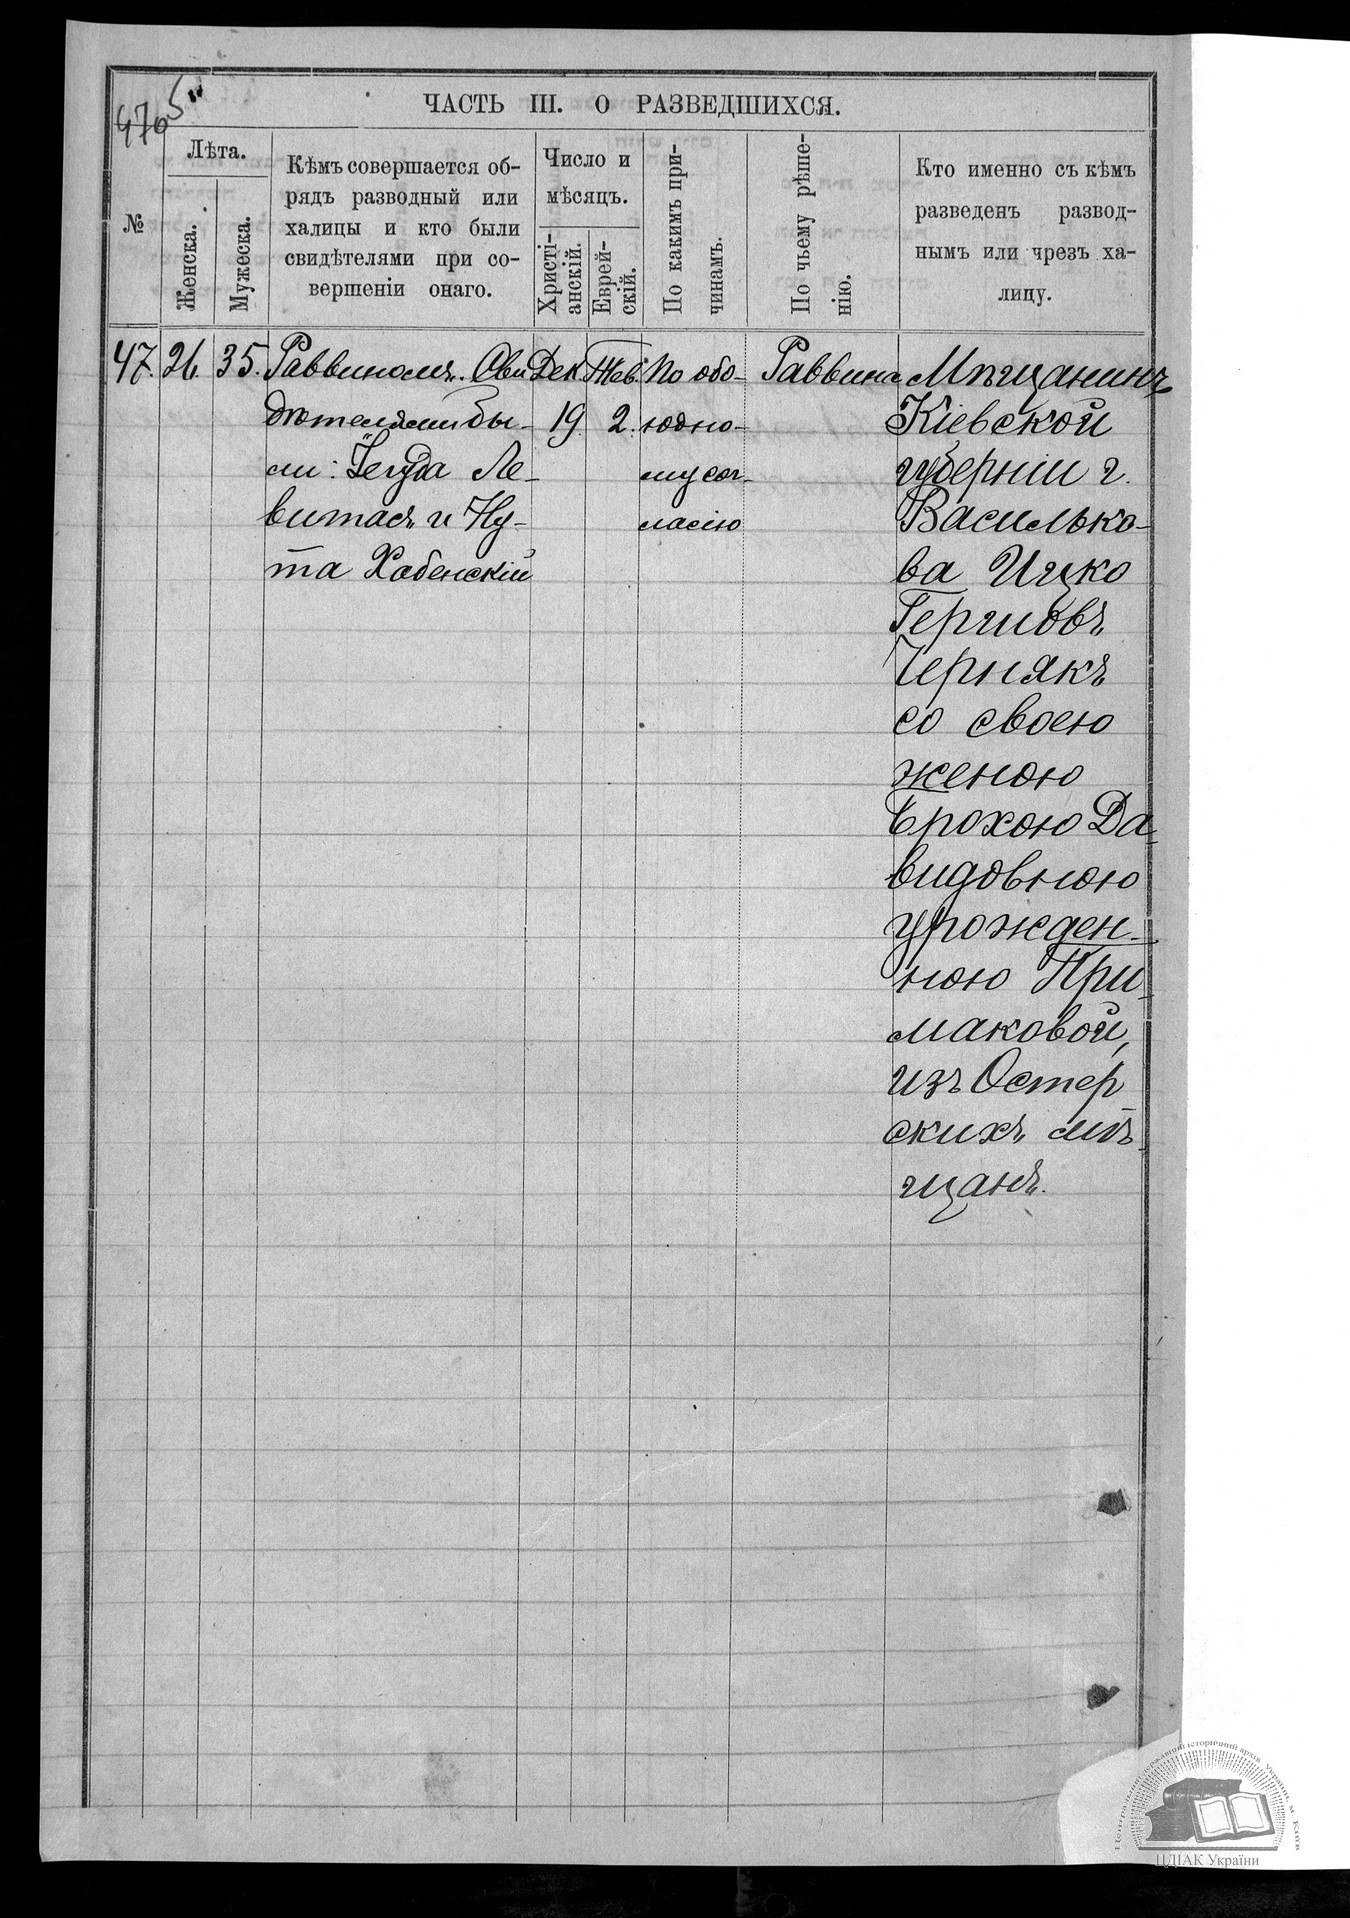 470 5"
ЧАСТЬ III. О РАЗВЕДШИХСЯ.
№
Лѣта.
Женска.
Мужеска.
Кѣмъ совершается об-
рядъ разводный или
халицы и кто были
свидѣтелями при со-
вершеніи онаго.
Число и
мѣсяцъ.
Христі-
анскій.
Еврей-
скій.
По какимъ при-
чинамъ.
По чьему рѣше-
нію.
Кто именно съ кѣмъ
разведенъ развод-
нымъ или чрезъ ха-
лицу.
47.
26.
35.
Раввиномъ. Сви
дѣтелями бы-
ли: Іегуда Ле-
витасъ и Ну-
та Хабенскій
Дек.
19.
Тев.
2.
По обо-
юдно-
му сог-
ласію
Раввина
Мѣщанинъ
Кіевской
губерніи г.
Василько-
ва Ицко
Гершовъ
Чернякъ
со своею
женою
Брохою Да-
видовною
урожден-
ною При-
маковой,
изъ Остер
скихъ мѣ-
щанъ.
Центральний державний історичний архів України, м. Київ
ЦДІАК України